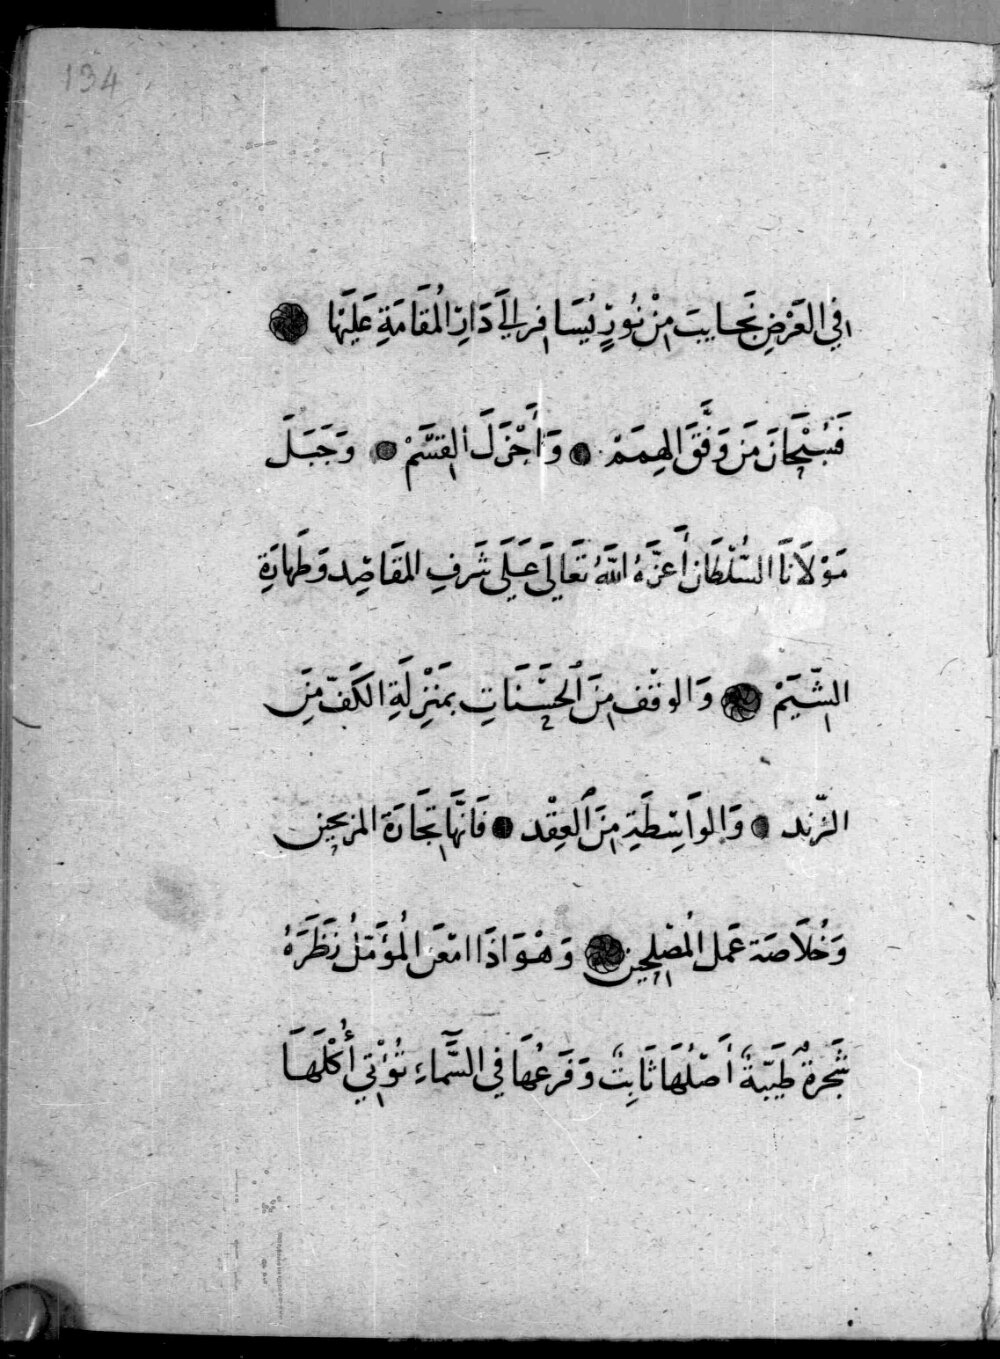 134
في العَرْضِ نَجايبَ مِنْ نُورٍ يُسَافر إلَى دَارِ المُقَامَةِ عَلَيْهَا
فَسُبْحَانَ مَن وَفَّقَ الهِمَمْ وَأَجْزَلَ القِسَمْ وَجَبَلَ
مَوْلَانَا السُّلْطَان أَعَزَّهُ اللَّهُ تَعَالَى عَلَى شَرَفِ المَقَاصِد وَطَهَارَةِ
الشِّيَمْ وَالوقْف مِنَ الحَسَنَاتِ بِمَنْزِلَةِ الكَفّ مِنَ
الزّند وَالوَاسِطَةِ مِنَ العِقْد فَانَّهَا تِجَارَة المربحين
وَخُلَاصَة عَمَل المُصْلِحِين وَهْوَ اذَا امْعَنَ المُؤَمّلُ نَظَرَهُ
شَجَرةٌ طَيِّبَةٌ أَصْلُهَا ثَابِتٌ وَفَرْعُهَا فِي السَّمَاءِ تُؤْتِي أُكْلَهَا